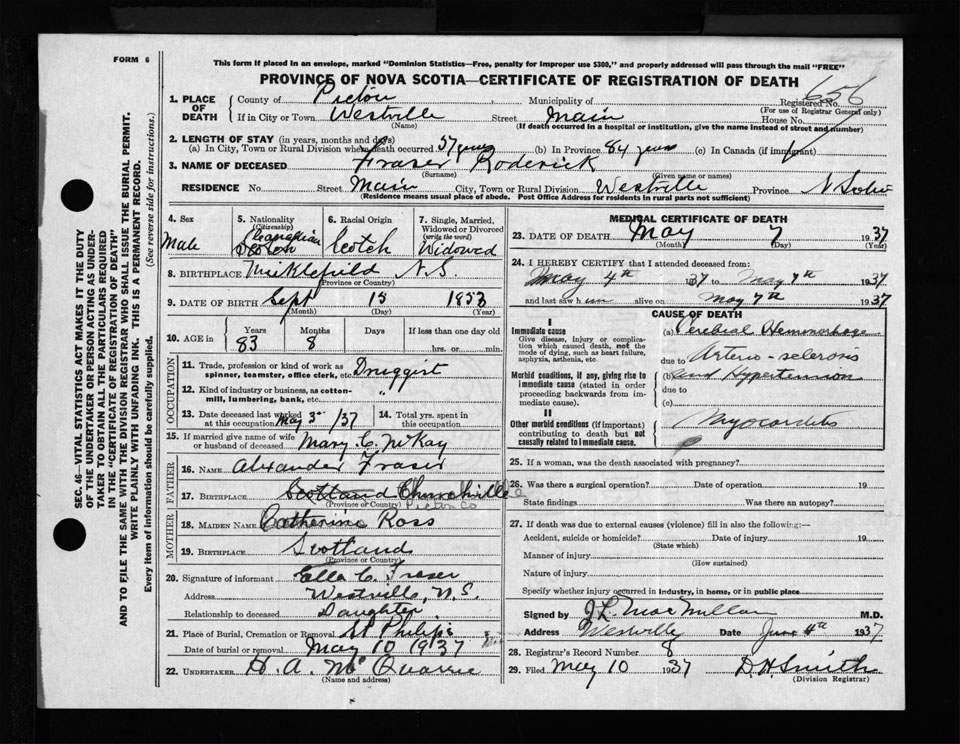 FORM 6
This form if placed in an envelope, marked "Dominion Statistics—Free, penalty for improper use $300," and properly addressed will pass through the mail "FREE"
PROVINCE OF NOVA SCOTIA—CERTIFICATE OF REGISTRATION OF DEATH
1. PLACE OF DEATH County of Pictou Municipality of Registered No. 656
(For use of Registrar General only)
If in City or Town Westville Street Main House No.
(Name) (If death occurred in a hospital or institution, give the name instead of street and number)
2. LENGTH OF STAY (in years, months and days)
(a) In City, Town or Rural Division where death occurred 57 years (b) In Province 84 years (c) In Canada (if immigrant)
3. NAME OF DECEASED Fraser Roderick
(Surname) (Given name or names)
RESIDENCE No. Street Main City, Town or Rural Division Westville Province N Scotia
(Residence means usual place of abode. Post Office Address for residents in rural parts not sufficient)
4. Sex Male
5. Nationality (Citizenship) Canadian
6. Racial Origin Scotch
7. Single, Married, Widowed or Divorced (write the word) Widowed
8. BIRTHPLACE N.S.
(Province or Country)
9. DATE OF BIRTH Sept 15 1853
(Month) (Day) (Year)
10. AGE in Years 83 Months 8 Days If less than one day old hrs. or min.
OCCUPATION
11. Trade, profession or kind of work as spinner, teamster, office clerk, etc. Druggist
12. Kind of industry or business, as cotton-mill, lumbering, bank, etc. "
13. Date deceased last worked at this occupation May 3rd /37
14. Total yrs. spent in this occupation
15. If married give name of wife or husband of deceased Mary C. McKay
FATHER
16. Name Alexander Fraser
17. Birthplace Scotland Churchville
(Province or Country) Pictou Co
MOTHER
18. Maiden Name Catherine Ross
19. Birthplace Scotland
(Province or Country)
20. Signature of informant Ella C. Fraser
Address Westville, N.S.
Relationship to deceased Daughter
21. Place of Burial, Cremation or Removal St Philips
Date of burial or removal May 10 1937
22. Undertaker H. A. McQuarrie
(Name and address)
MEDICAL CERTIFICATE OF DEATH
23. DATE OF DEATH May 7 1937
(Month) (Day)
24. I HEREBY CERTIFY that I attended deceased from:
May 4th 1937 May 7th 1937
and last saw him alive on May 7th 1937
CAUSE OF DEATH
I
Immediate cause
Give disease, injury or complication which caused death, not the mode of dying, such as heart failure, asphyxia, asthenia, etc
(a) Cerebral Hemorrhage
due to Arterio-sclerosis
Morbid conditions, if any, giving rise to immediate cause (stated in order proceeding backwards from immediate cause).
(b) and Hypertension
due to
(c)
II
Other morbid conditions (if important) contributing to death but not causally related to immediate cause.
Myocarditis
25. If a woman, was the death associated with pregnancy?
26. Was there a surgical operation? Date of operation 19
State findings Was there an autopsy?
27. If death was due to external causes (violence) fill in also the following:—
Accident, suicide or homicide? Date of injury 19
(State which)
Manner of injury
(How sustained)
Nature of injury
Specify whether injury occurred in industry, in home, or in public place
Signed by J L MacMillan M.D.
Address Westville Date June 4th 1937
28. Registrar's Record Number 8
29. Filed May 10 1937 D.H. Smith
(Division Registrar)
SEC. 46—VITAL STATISTICS ACT MAKES IT THE DUTY
OF THE UNDERTAKER OR PERSON ACTING AS UNDER-
TAKER TO OBTAIN ALL THE PARTICULARS REQUIRED
IN THE "CERTIFICATE OF REGISTRATION OF DEATH"
AND TO FILE THE SAME WITH THE DIVISION REGISTRAR WHO SHALL ISSUE THE BURIAL PERMIT.
WRITE PLAINLY WITH UNFADING INK. THIS IS A PERMANENT RECORD.
Every item of information should be carefully supplied. (See reverse side for instructions.)